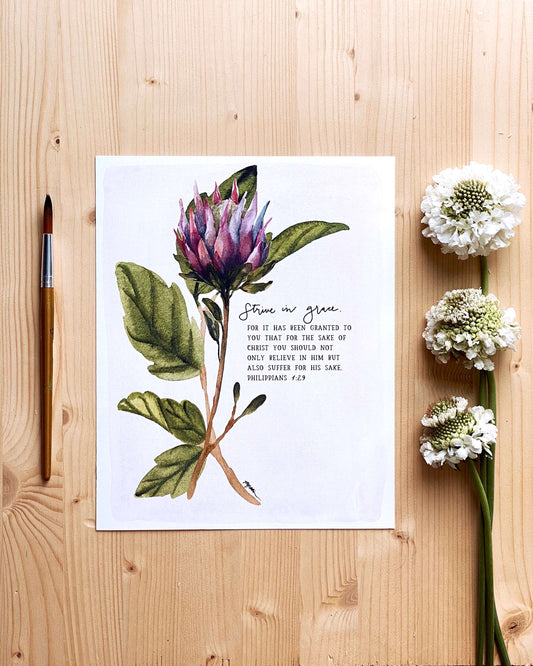 Strive in grace.
FOR IT HAS BEEN GRANTED TO
YOU THAT FOR THE SAKE OF
CHRIST YOU SHOULD NOT
ONLY BELIEVE IN HIM BUT
ALSO SUFFER FOR HIS SAKE.
PHILIPPIANS 1:29